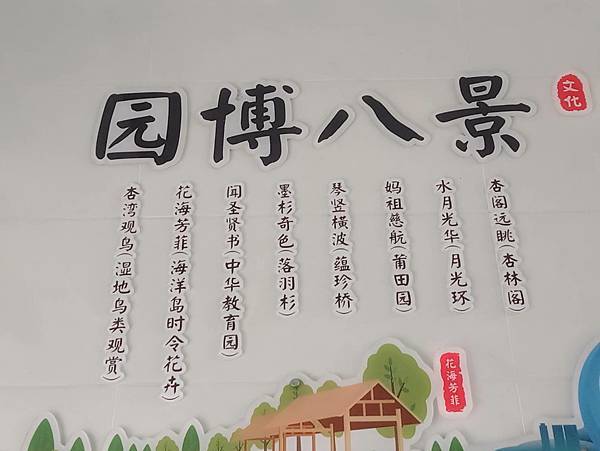 园博八景
文化
杏阁远眺(杏林阁)
水月光华(月光环)
妈祖慈航(莆田园)
琴竖横波(蕴珍桥)
墨杉奇色(落羽杉)
闻圣贤书(中华教育园)
花海芳菲(海洋岛时令花卉)
杏湾观鸟(湿地鸟类观赏)
花海芳菲